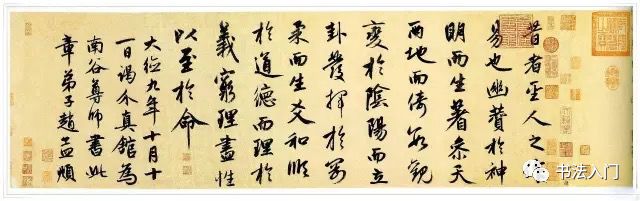 昔者聖人之作
易也幽贊於神
明而生蓍參天
兩地而倚數觀
變於陰陽而立
卦發揮於剛
柔而生爻和順
於道德而理於
義窮理盡性
以至於命
大德九年十月十
一日謁介真館為
南谷尊師書此
章弟子趙孟頫
书法入门